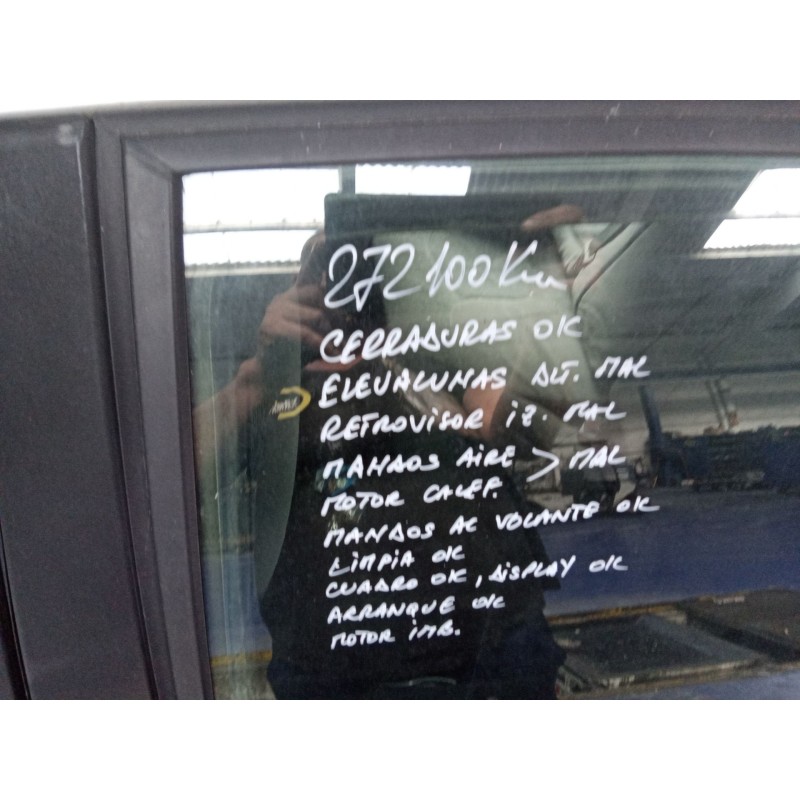 272100 Km
CERRADURAS OK
ELEVALUNAS DLT. MAL
RETROVISOR IZ. MAL
MANDOS AIRE > MAL
MOTOR CALEF.
MANDOS AL VOLANTE OK
LIMPIA OK
CUADRO OK, DISPLAY OK
ARRANQUE OK
MOTOR IMB.